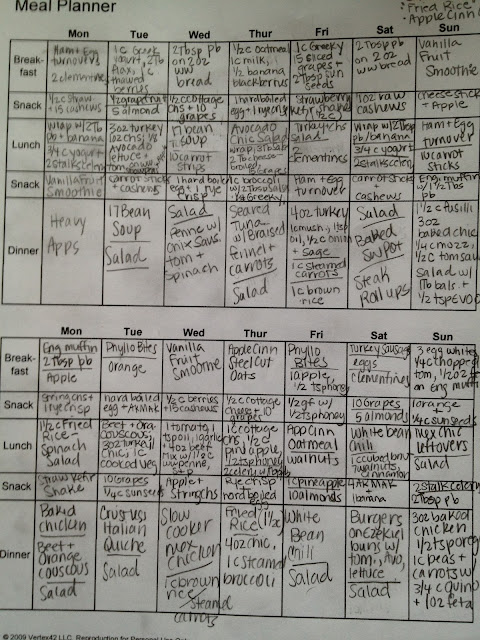 Meal Planner
"Fried Rice"
• Apple Cinn
Mon Tue Wed Thur Fri Sat Sun
Break-
fast
Ham + Egg
turnovers
2 clementines
1c Greek
yogurt, 2Tb
flax, 1c
thawed
berries
2Tbsp pb
on 2oz
ww
bread
1/2c oatmeal
1c milk, 1
1/2 banana
blackberries
1c Greeky
15 sliced
grapes +
2Tbsp sun
seeds
2Tbsp pb
on 2oz
ww bread
Vanilla
Fruit
Smoothie
Snack
+ 15 cashews
1/2 grapefruit
5 almond
1/2c cottage
chs + 10
grapes
1 hardboiled
egg + 1 ryecrisp
Strawberry
1oz raw
cashews
cheese stick
+ Apple
Lunch
Wrap w/ 2Tb
pb + banana
3/4c yogurt
2 stalks celery
3oz turkey
avocado
lettuce
tom
17 bean
soup
10 carrot
strips
Avocado
Chic Salad
grapes
Turkey + chs
Salad
2
clementines
wrap w/ 2Tbsp
pb/banana
3/4c yogurt
2 stalks celery
Ham + Egg
turnover
10 carrot
sticks
Snack
Vanilla Fruit
Smoothie
Carrot sticks
+ cashews
1 hard boiled
egg + 1 rye
crisp
1c broccoli
Ham + Egg
turnover
carrot sticks
+
cashews
Eng muffin
w/ 1 1/2 Tbs
pb
Dinner
Heavy
Apps
17 Bean
Soup
Salad
Salad
Penne w/
Onix Saus.
tom +
Spinach
Seared
Tuna
w/ Braised
fennel +
carrots
Salad
4oz turkey
1c mush, 1 tsp
oil, 1/2c onion
+ sage
1c steamed
carrots
1c brown
rice
Salad
Baked
Sw. Pot
Steak
Roll ups
1 1/2 c fusilli
3oz
baked chic
1/4c mozz, 1/2
c tom sauce
salad w/
1Tb bals. +
1/2 tsp EVOO
Mon Tue Wed Thur Fri Sat Sun
Break-
fast
Eng muffin
2Tbsp pb
Apple
Phyllo Bites
orange
Vanilla
Fruit
Smoothie
Apple Cinn
Steel Cut
Oats
Phyllo
Bites
1 apple,
1/2 tsp honey
Turkey Sausage
eggs
clementines
3 egg whites
1/4c chopped
tom, 1/2oz
on Eng muffin
Snack
String chs +
1 rye crisp
hard boiled
egg + AkMak
1/2c berries
+ 15 cashews
1/2c cottage
cheese + 10
grapes
1/2 gf w/
1/2 tsp honey
10 Grapes
5 almonds
1 orange
+
1/4c sun seeds
Lunch
1 1/2c Fried
Rice -
Spinach
Salad
Beet + Ora.
couscous,
3oz turkey
chic, 1c
cooked veg
1 tomato,
1 tsp oil, 1 garlic
4oz beef
mix w/ 1/2c
ww penne,
1/2 tsp
1c cottage
chs, 1/2c
pineapple
1/2 tsp honey
App Cinn
Oatmeal
walnuts
White bean
chili
cinnamon
Mex chic
leftovers
Salad
Snack
Straw Kefir
Shake
10 Grapes
1/4c sun seeds
Apple +
String chs
Rye crisp
hard boiled
egg
1c pineapple
10 almonds
4 AK MAK
+
1 banana
2 stalk celery
2 tbsp pb
Dinner
Baked
chicken
Beet +
Orange
couscous
Salad
Crustless
Italian
Quiche
Salad
Slow
cooker
mex
chicken
1c brown
rice
steamed
carrots
Fried
Rice (1 1/2c)
4oz chic,
1c steamed
broccoli
White
Bean
Chili
Salad
Burgers
on Ezekiel
buns w/
tom, Avo,
lettuce
Salad
3oz baked
chicken
1/2 tsp oreg
1c peas +
carrots w/
3/4c quino
+ 1oz feta
© 2009 Vertex42 LLC. Reproduction for Personal Use Only.